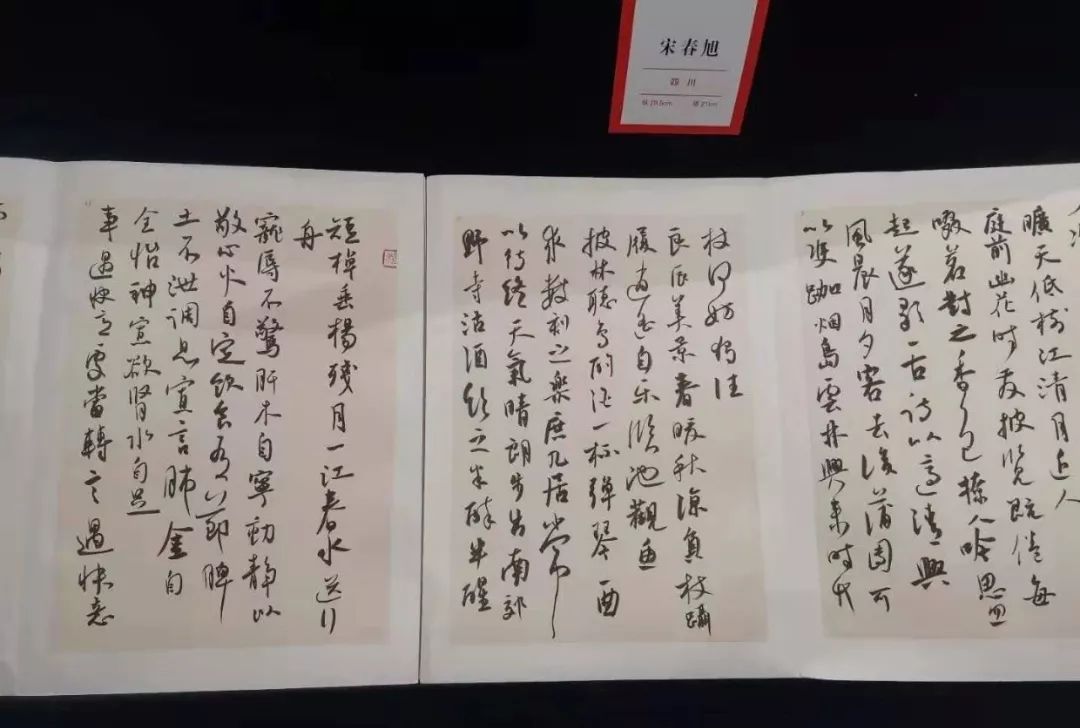 宋春旭
四川
曠天低樹江清月近人
庭前幽花時發披覽既倦每
啜茗對之香色撩人吟思忽
起遂歌古詩以適清興
風晨月夕客去後蒲團可
以雙跏烟島雲林興來時代
杖何妨獨往
良辰美景春暖秋涼負杖躡
履逍遙自乐臨池觀魚
披林聽鳥酌酒一杯彈琴一曲
求數刻之樂庶几居常
以待終天氣晴朗步出南郊
野寺沽酒飲之半醉半醒
短棹垂楊殘月一江春水送行
舟
寵辱不驚肝木自寧動靜以
敬心火自定飲食有節脾
土不泄調息寡言肺金自
全怡神寡欲腎水自足
事遇快意處當轉言遇快意